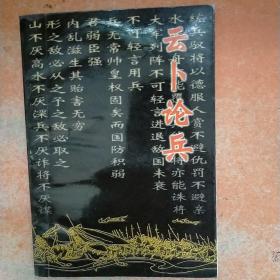 云卜论兵
兵驭将以德服人赏不避仇罚不避亲
水能将亦能诛将
大军列阵不可轻言进退敌国未衰
不可轻言用兵
兵无常帅皇权固矣而国防积弱
君弱臣强
内乱滋生其贻害无穷
形之敌必从之予之敌必取之
山不厌高水不厌深兵不厌诈将不厌谋